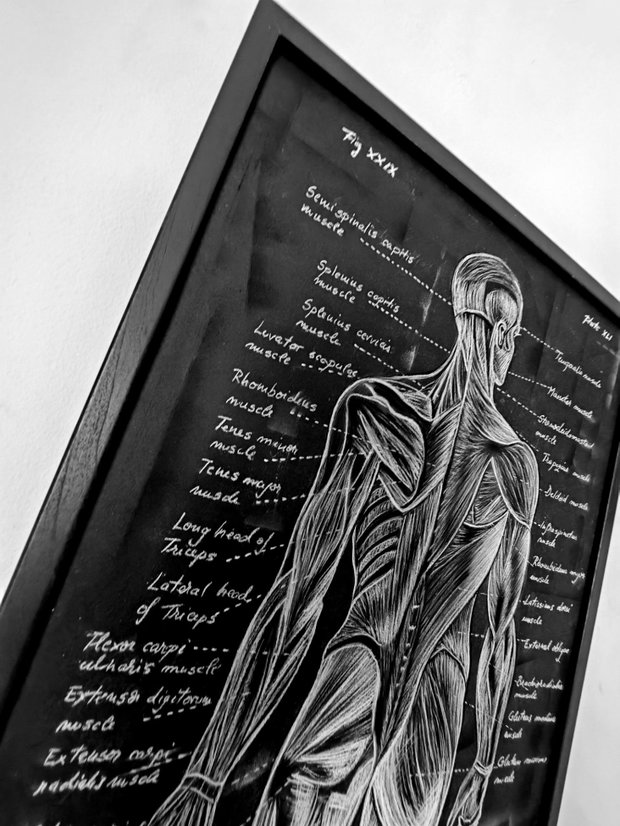 Fig XXIX
Plate XLI
Semispinalis capitis
muscle
Splenius capitis
muscle
Splenius cervicis
muscle
Levator scapulae
muscle
Rhomboideus
muscle
Teres minor
muscle
Teres major
muscle
Long head of
Triceps
Lateral head
of Triceps
Flexor carpi
ulnaris muscle
Extensor digitorum
muscle
Extensor carpi
radialis muscle
Temporalis muscle
Masseter muscle
muscle
Trapezius muscle
Deltoid muscle
Infraspinatus
muscle
Rhomboideus major
muscle
Latissimus dorsi
muscle
External oblique
Brachioradialis
muscle
Gluteus medius
muscle
Gluteus maximus
muscle